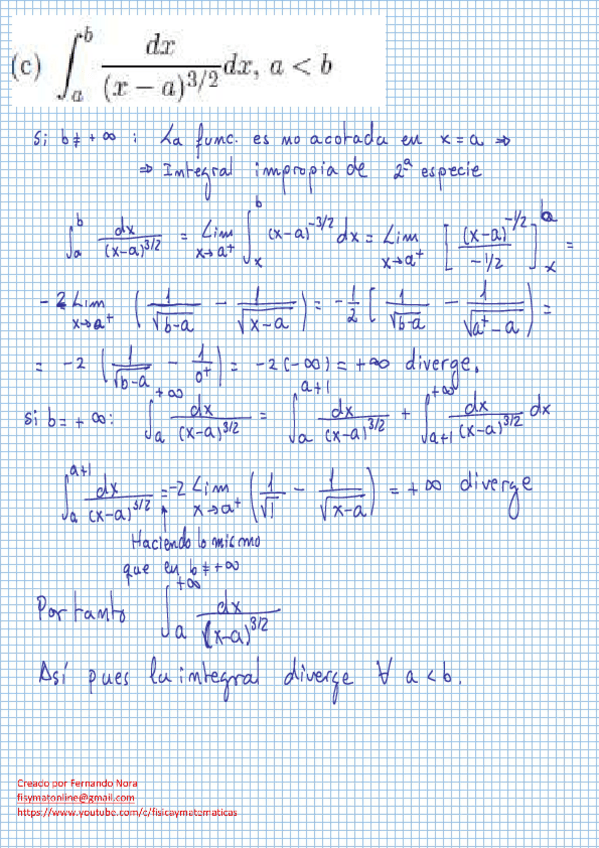 (c) ∫_a^b dx/(x − a)^{3/2} dx, a < b
Si b ≠ +∞ : La func. es no acotada en x = a ⇒
⇒ Integral impropia de 2ª especie
∫_a^b dx/(x-a)^{3/2} = Lim_{x→a⁺} ∫_x^b (x-a)^{-3/2} dx = Lim_{x→a⁺} [ (x-a)^{-1/2} / -1/2 ]_x^b =
-2 Lim_{x→a⁺} ( 1/√(b-a) - 1/√(x-a) ) = -1/2 [ 1/√(b-a) - 1/√(a⁺-a) ] =
= -2 ( 1/√(b-a) - 1/0⁺ ) = -2(-∞) = +∞ diverge.
si b = +∞: ∫_a^{+∞} dx/(x-a)^{3/2} = ∫_a^{a+1} dx/(x-a)^{3/2} + ∫_{a+1}^{+∞} dx/(x-a)^{3/2} dx
∫_a^{a+1} dx/(x-a)^{3/2} = -2 Lim_{x→a⁺} ( 1/√1 - 1/√(x-a) ) = +∞ diverge
↑
Haciendo lo mismo
que en b ≠ +∞
Por tanto ∫_a^{+∞} dx/(x-a)^{3/2}
Así pues la integral diverge ∀ a < b.
Creado por Fernando Nora
fisymatonline@gmail.com
https://www.youtube.com/c/fisicaymatematicas